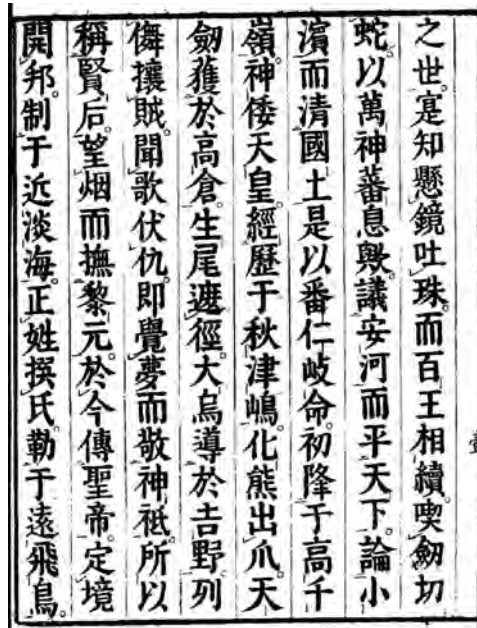 之世。寔知懸鏡吐珠。而百王相續。喫劔切
蛇。以萬神蕃息歟。議安河而平天下。論小
濱而清國土。是以番仁岐命。初降于高千
嶺。神倭天皇。經歷于秋津嶋。化熊出爪。天
劔獲於高倉。生尾遮徑。大烏導於吉野。列
儛攘賊。聞歌伏仇。即覺夢而敬神祇。所以
稱賢后。望烟而撫黎元。於今傳聖帝。定境
開邦。制于近淡海。正姓撰氏。勒于遠飛鳥。